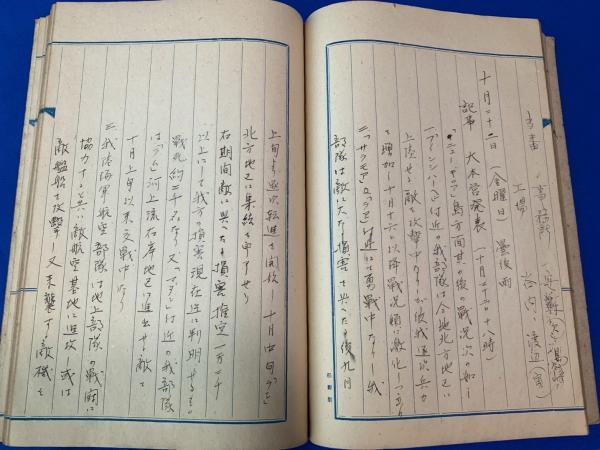 当番 事務訳
工場 谷向 渡辺(寅)
十月二十二日(金曜日) 曇後雨
記事 大本営発表(十月二十二日十八時)
一、ニューギニア島方面其の後の戦況次の如し
「フインシハーヘン」付近の我部隊は今地北方地区に
上陸せる敵を攻撃中なりしが彼我逐次兵力
を増加し十月十六日以降戦況頓に激化しつゝあり
二、「サラモア」及「ラエ」付近にて勇戦中なりし我
部隊は敵に大なる損害を与へたる後九月
上旬より逐次転進を開始し十月中旬
北方地区に集結を申了せり
右期間敵に与へたる損害推定一万二千
以上にして我方の損害現在迄に判明せるもの
戦死約二千名なり又「マダン」付近の我部隊
は「ラム」河上流右岸地区に進出せる敵と
十月上旬以来交戦中なり
三、我陸海軍航空部隊は地上部隊の戦闘に
協力すると共に敵航空基地に進攻し或は
敵艦船を攻撃し又来襲する敵機を